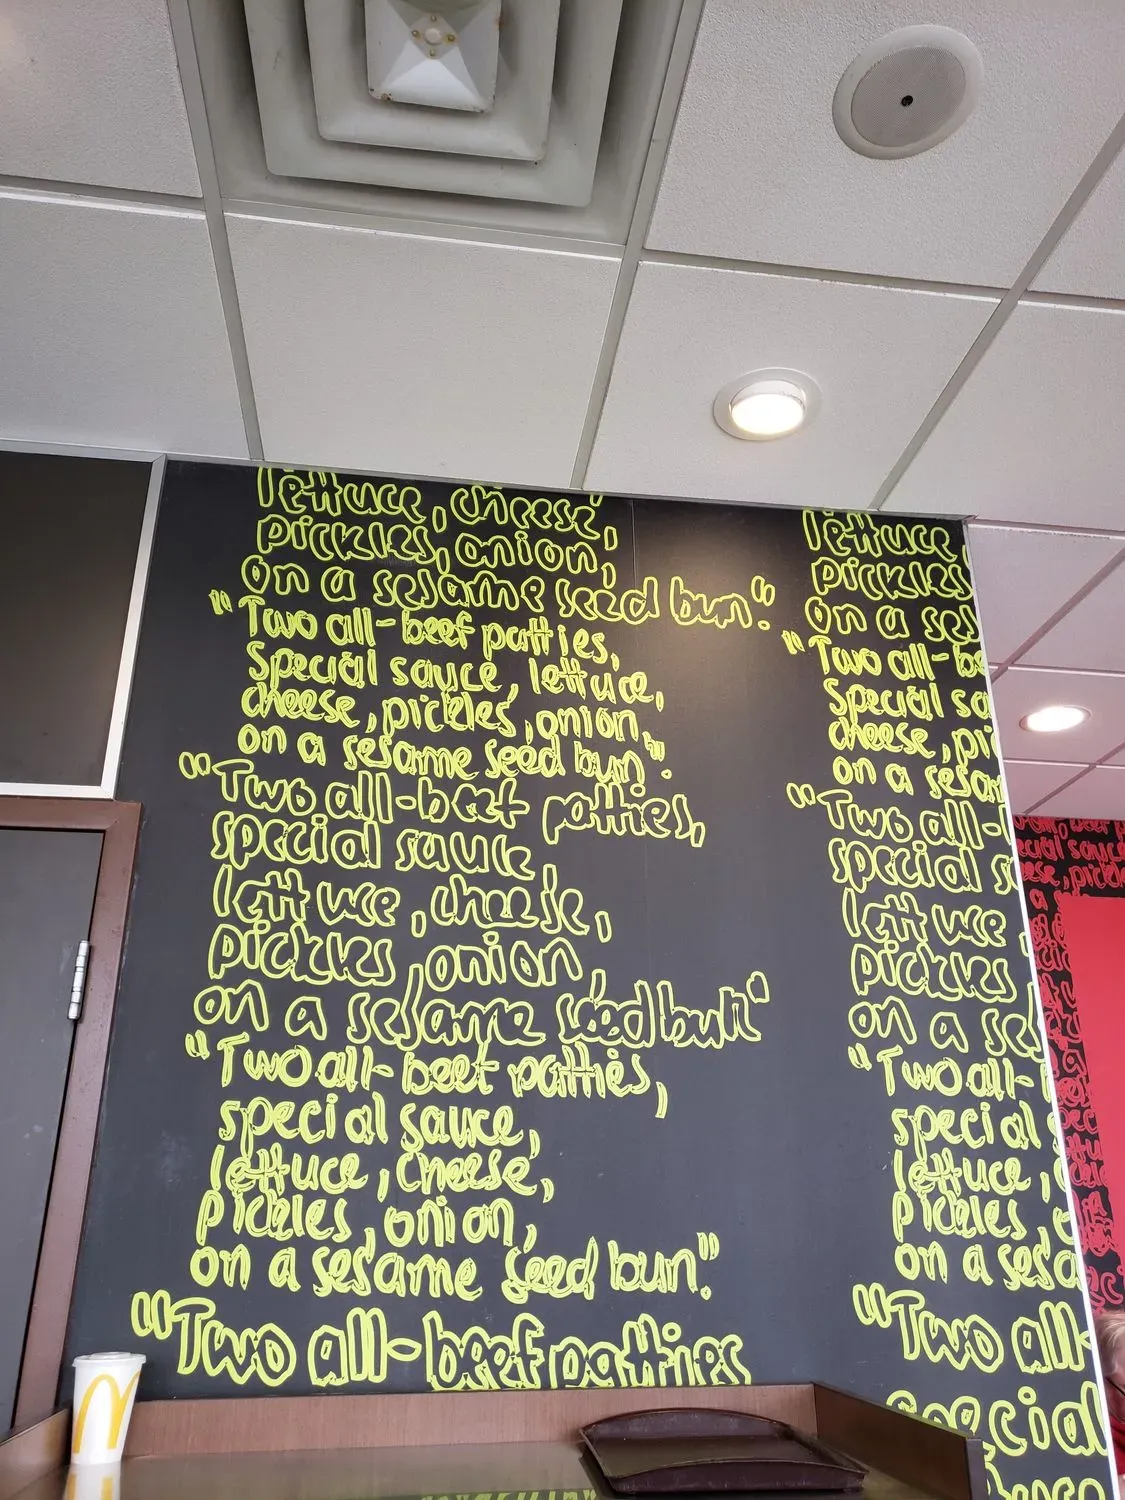 lettuce, cheese,
pickles, onion,
on a sesame seed bun."
"Two all-beef patties,
special sauce, lettuce,
cheese, pickles, onion,
on a sesame seed bun".
"Two all-beef patties,
special sauce,
lettuce, cheese,
pickles, onion,
on a sesame seed bun"
"Two all-beef patties,
special sauce,
lettuce, cheese,
pickles, onion,
on a sesame seed bun."
"Two all-beef patties
lettuce,
pickles
on a ses
"Two all-be
special sa
cheese, pic
on a sesam
"Two all-
special s
lettuce
pickles
on a ses
"Two all-
special
lettuce,
pickles,
on a sesa
"Two all-
special